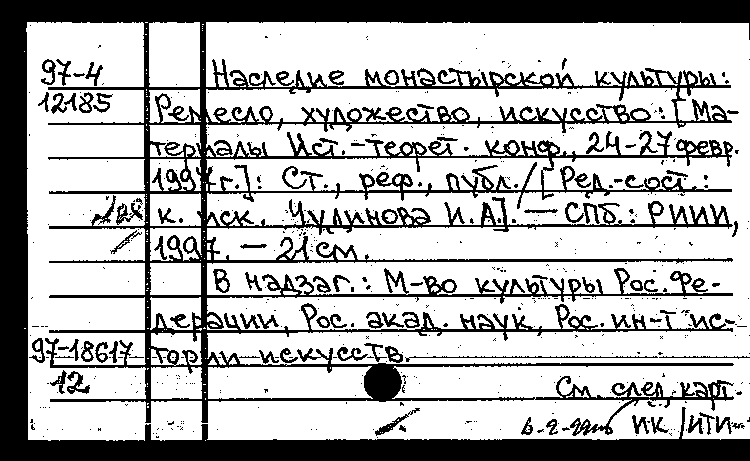 97-4 Наследие монастырской культуры:
12185 Ремесло, художество, искусство: [Ма-
териалы Ист.-теорет. конф., 24-27 февр.
1997г.]: Ст., реф., публ. / [Ред.-сост.:
к. иск. Чудинова И.А.]. — СПб.: РИИИ,
1997. — 21 см.
В надзаг.: М-во культуры Рос. Фе-
дерации, Рос. акад. наук, Рос. ин-т ис-
97-18617 тории искусств.
12 См. след. карт.
ИК / ИТИ